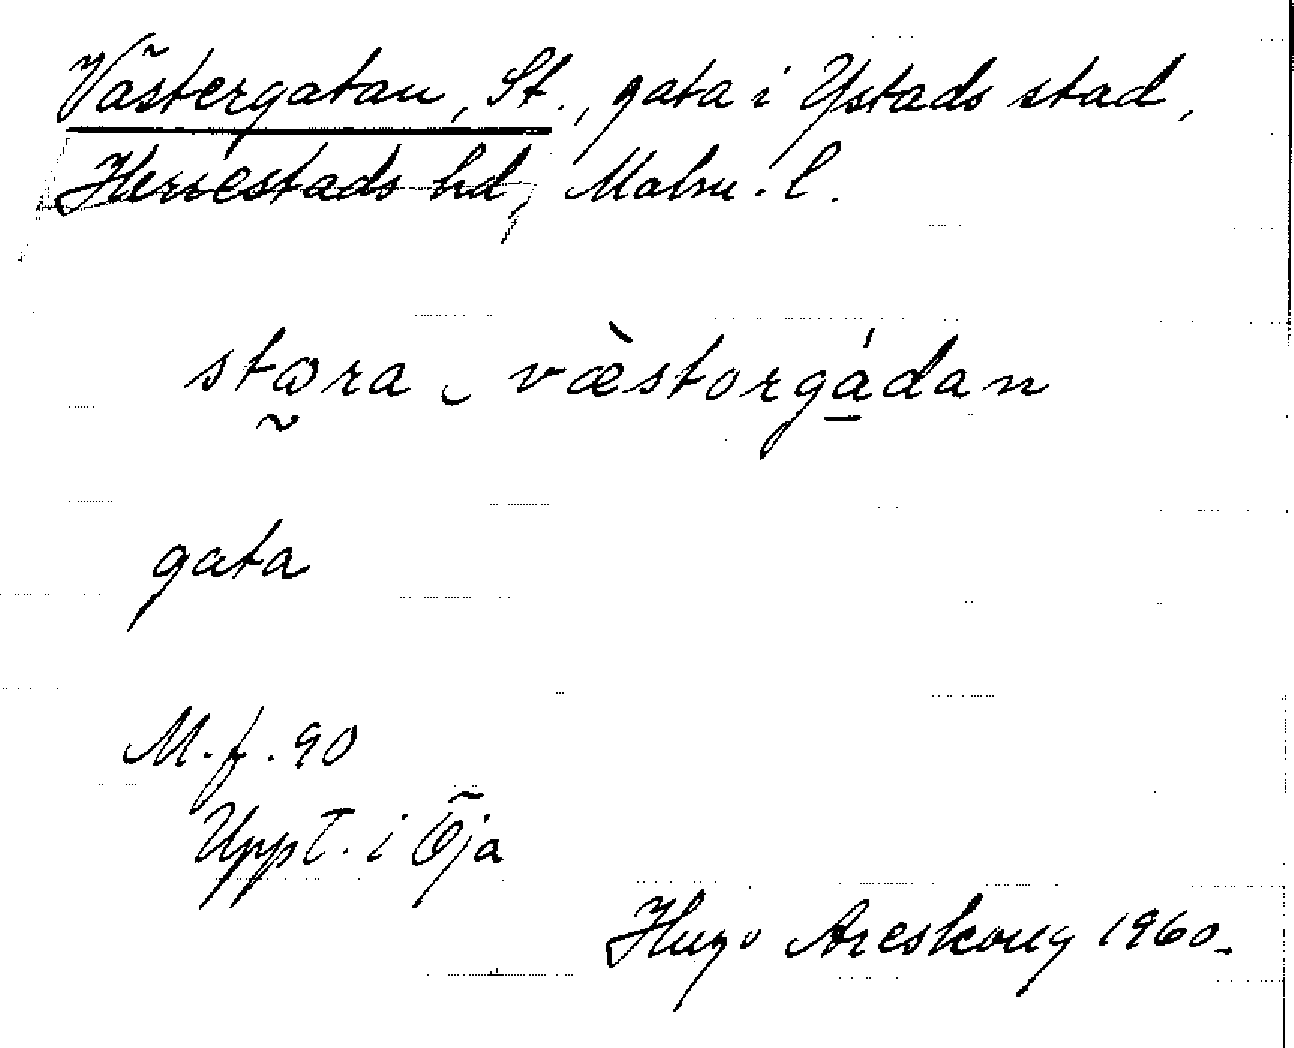 Västergatan, St., gata i Ystads stad,
Herrestads hd, Malm. l.
stœra ‿ væ̀storgá̠dan
gata
M. f. 90
Uppt. i Öja
Hugo Areskoug 1960.